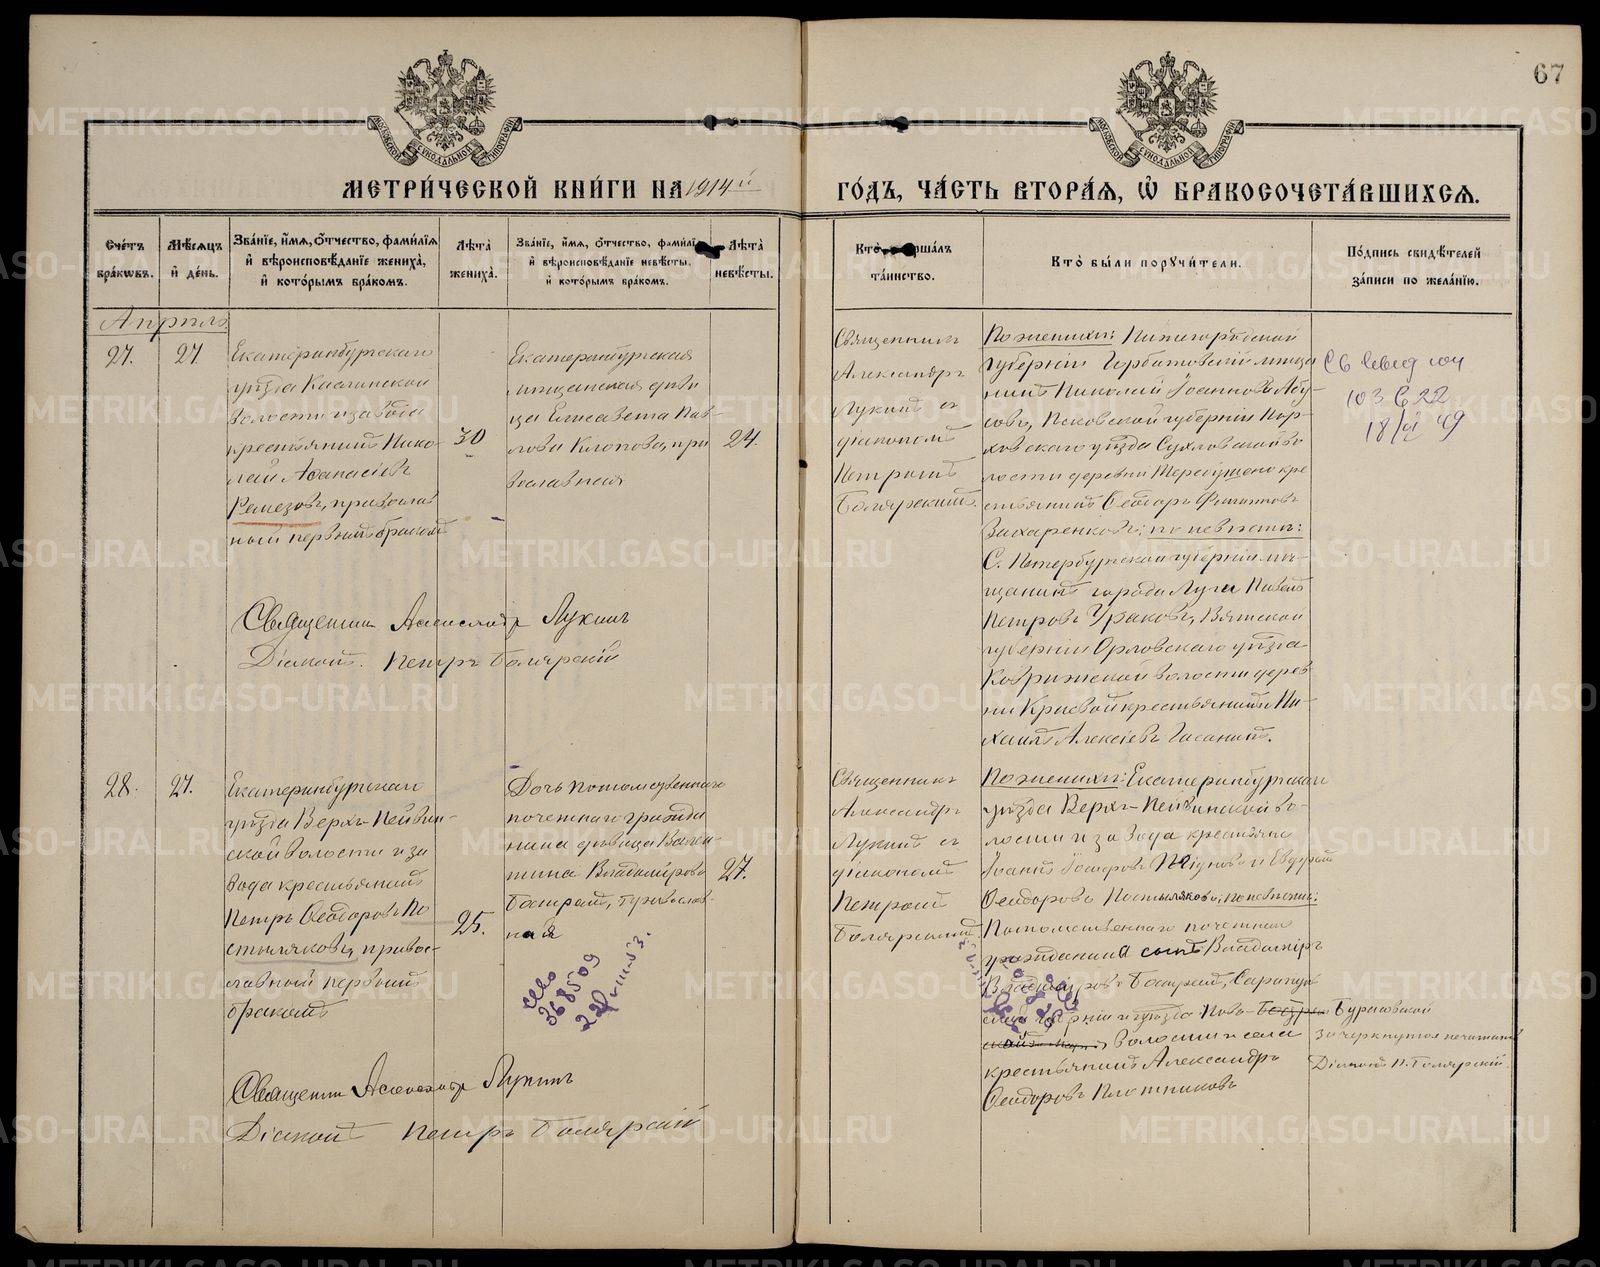 67
МЕТРИ́ЧЕСКОЙ КНИ́ГИ НА 1914 й
ГО́ДЪ, ЧА́СТЬ ВТОРА́Я, Ѡ҆ БРАКОСОЧЕТА́ВШИХСЯ.
Сче́тъ бра́ковъ.
Мѣ́сяцъ и҆ де́нь.
Зва́нїе, и҆́мя, ѻ҆́тчество, фами́лїя
и҆ вѣроисповѣ́данїе жениха̀,
и҆ кото́рымъ бра́комъ.
Лѣ́та жениха̀.
Зва́нїе, и҆́мя, ѻ҆́тчество, фами́лїя
и҆ вѣроисповѣ́данїе невѣ́сты,
и҆ кото́рымъ бра́комъ.
Лѣ́та невѣ́сты.
Кто̀ соверша́лъ та́инство.
Кто̀ бы́ли поручи́тели.
По́дпись свидѣ́телей
за́писи по жела́нїю.
Апрѣль
27.
27
Екатеринбургскаго
уѣзда Каслинской
волости и завода
крестьянинъ Нико-
лай Аѳанасіевъ
Ремезовъ, православ
ный первымъ бракомъ
30
Екатеринбургская
мѣщанская дѣви
ца Елисавета Пав-
лова Клопова, пра
вославная
24.
Священникъ
Александръ
Лукинъ съ
діакономъ
Петромъ
Боляр­скимъ.
По женихѣ: Нижегородской
губерніи Горбатовскій мѣща
нинъ Николай Іоанновъ
совъ, Псковской губерніи Пор-
ховскаго уѣзда во
лости деревни кре
стьянинъ Ѳеодоръ Филипповъ
Захаренковъ; по невѣстѣ:
С. Петербургской губерніи мѣ-
щанинъ города Луги Павелъ
Петровъ Ураковъ, Вятской
губерніи Орловскаго уѣзда
волости дерев
ни Кривой крестьянинъ Ми-
хаилъ Алексіевъ
103 622
18/VI 49
Священникъ Александръ Лукинъ
Діаконъ Петръ Болярскій
28.
27.
Екатеринбургскаго
уѣзда Верхъ-Нейвин-
ской волости и за
вода крестьянинъ
Петръ Ѳеодоровъ По
стыляковъ, правос-
лавный первымъ
бракомъ
25.
Дочь потомственнаго
почетнаго гражда
нина дѣвица Вален-
тина Владимірова
православ-
ная
27.
368509
Священникъ
Александръ
Лукинъ съ
діакономъ
Петромъ
Болярскимъ
По женихѣ: Екатеринбургскаго
уѣзда Верхъ-Нейвинской во-
лости и завода крестьяне
Іоаннъ и
Ѳеодоровъ Постыляковы; по невѣстѣ:
Потомственнаго почетнаго
гражданина сынъ Владиміръ
Владиміровъ Сарапуль
губерніи и уѣзда Ново- Бурановской
волости и села
крестьянинъ Александръ
Ѳеодоровъ Плотниковъ
зачеркнутое
Діаконъ П. Болярскій.
Священникъ Александръ Лукинъ
Діаконъ Петръ Болярскій
METRIKI.GASO-URAL.RU